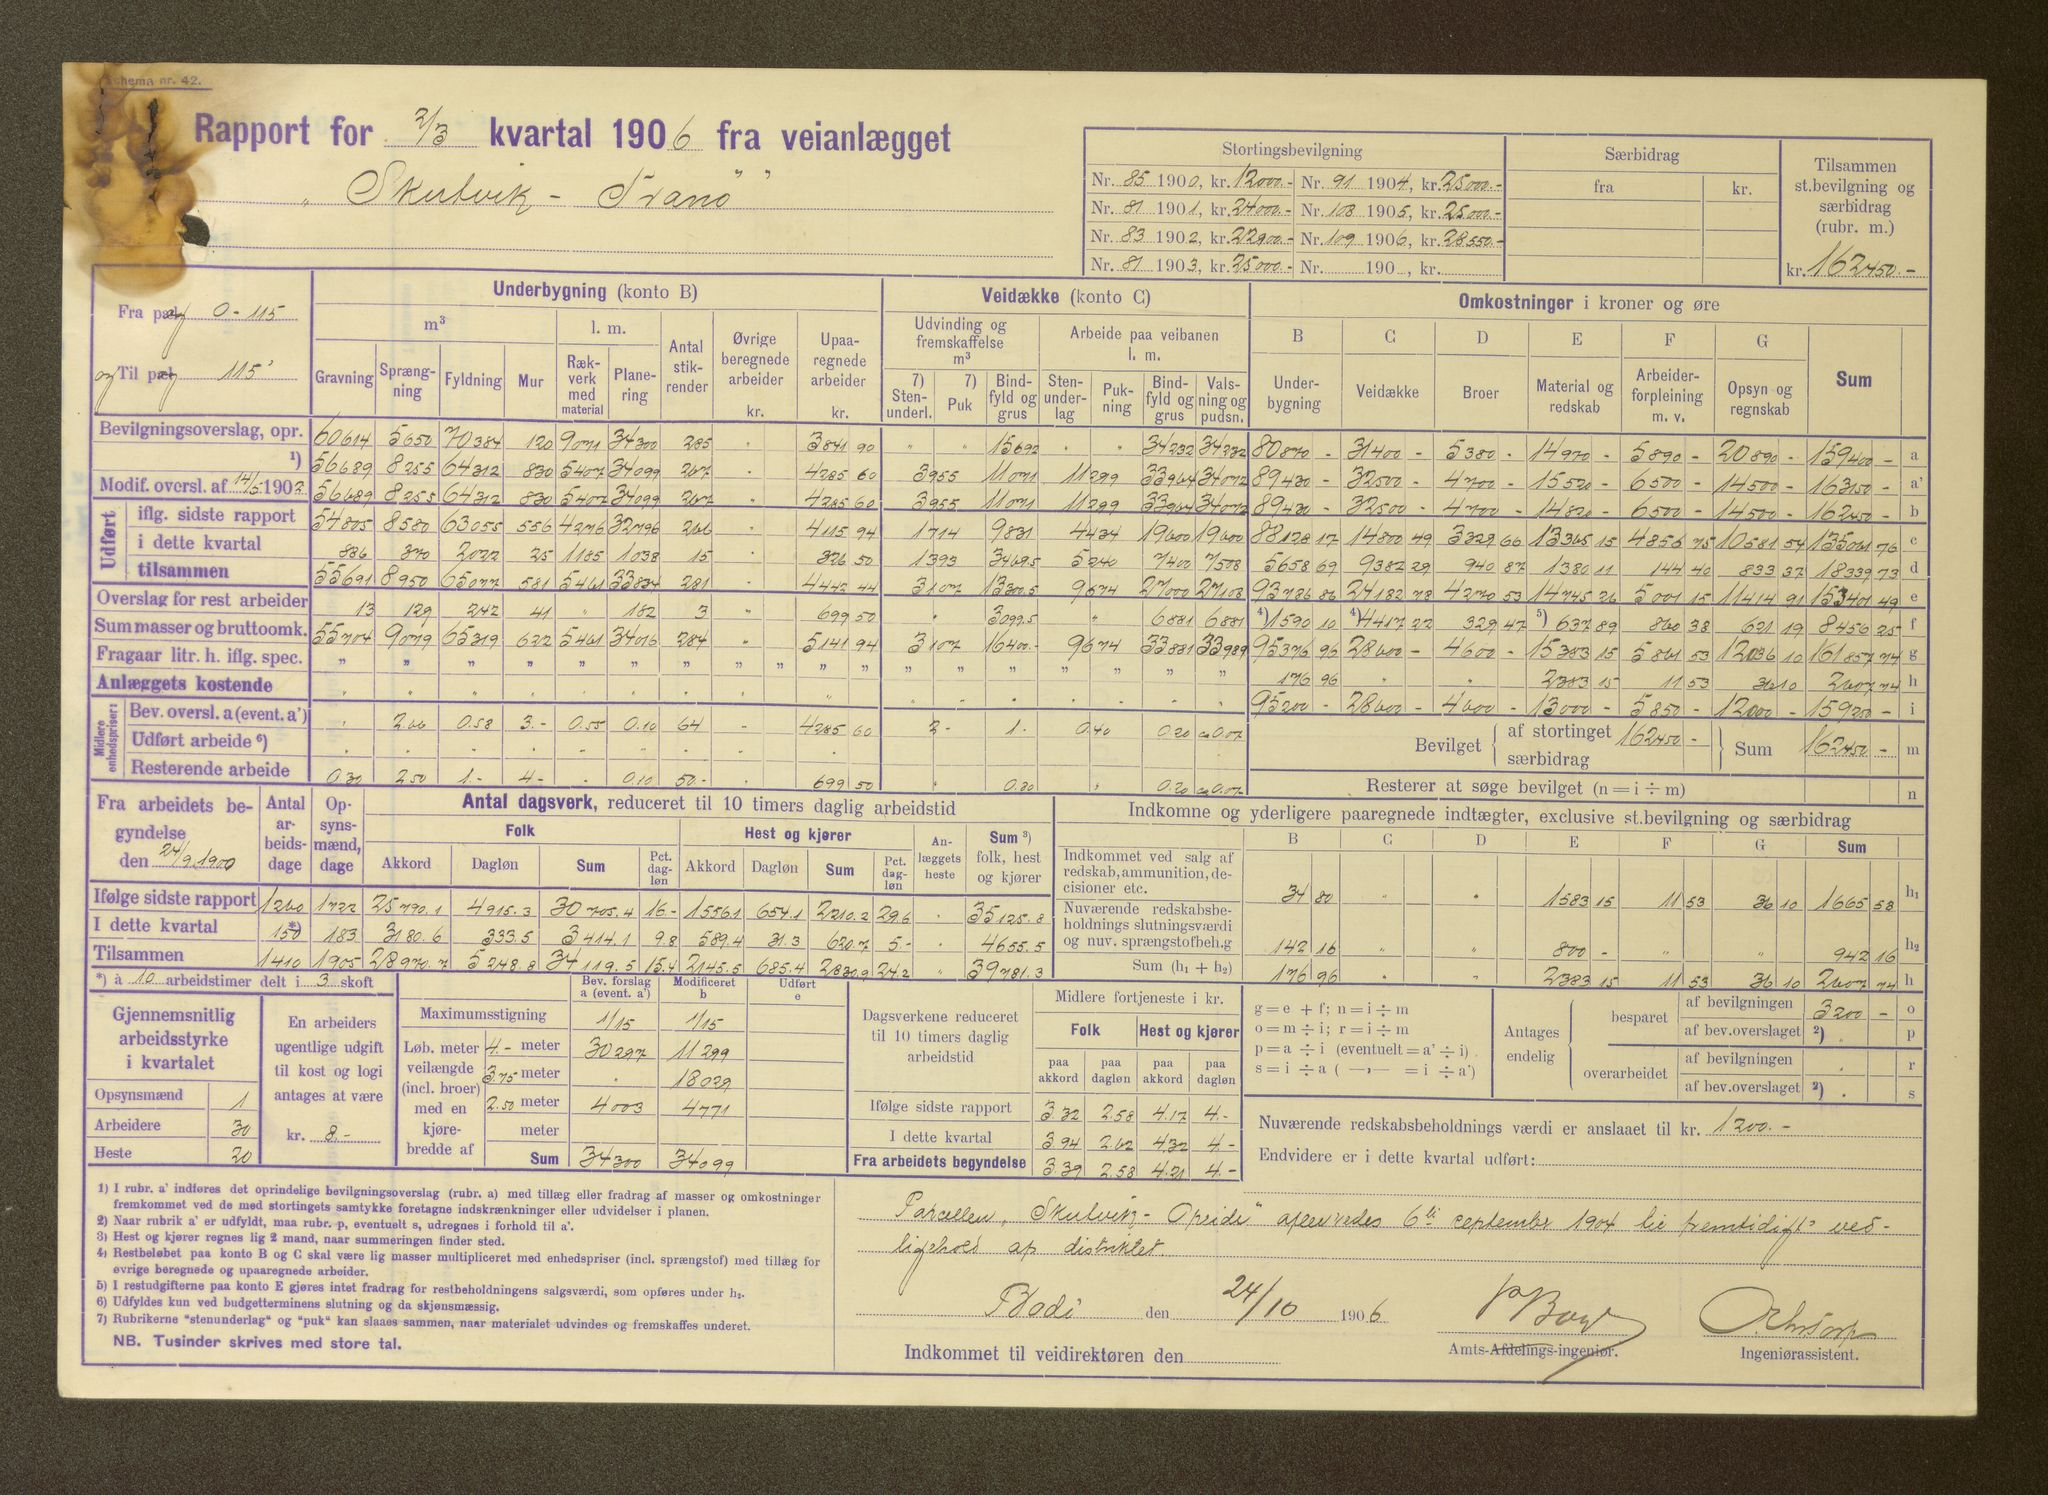 Schema nr. 42.
Rapport for 2/3 kvartal 1906 fra veianlægget
„ Skutvik - Tranö"
Stortingsbevilgning Særbidrag Tilsammen st.bevilgning og særbidrag (rubr. m.)
fra kr.
Nr. 85 1900, kr. 12000.- Nr. 91 1904, kr. 25000.-
Nr. 81 1901, kr. 24000.- Nr. 108 1905, kr. 25000.-
Nr. 83 1902, kr. 22900.- Nr. 109 1906, kr. 28550.-
Nr. 81 1903, kr. 25000.- Nr. 190 , kr. kr. 162450.-
Fra pæl 0 - 115
og Til pæl 115'
Underbygning (konto B) Veidække (konto C) Omkostninger i kroner og øre
m³ l. m. Antal stikrender Øvrige beregnede arbeider kr. Upaaregnede arbeider kr.
Udvinding og fremskaffelse m³ Arbeide paa veibanen l. m.
B C D E F G Sum
Gravning Sprængning Fyldning Mur Rækverk med material Planering
7) Stenunderl. 7) Puk Bindfyld og grus Stenunderlag Pukning Bindfyld og grus Valsning og pudsn.
Underbygning Veidække Broer Material og redskab Arbeiderforpleining m. v. Opsyn og regnskab
Bevilgningsoverslag, opr. 60614 5650 70384 120 9071 34300 285 " 3841 90 " " 15692 " " 34232 34232 80870 - 31400 - 5380 - 14970 - 5890 - 20890 - 159400 - a
¹) 56689 8255 64312 830 5407 34099 267 " 4285 60 3955 11071 11299 33964 34072 89430 - 32500 - 4700 - 15520 - 6500 - 14500 - 163150 - a'
Modif. oversl. af 14/5 1902 56689 8255 64312 830 5407 34099 267 " 4285 60 3955 11071 11299 33964 34072 89430 - 32500 - 4700 - 14820 - 6500 - 14500 - 162450 - b
Udført
iflg. sidste rapport 54805 8580 63055 556 4276 32796 266 4115 94 1714 9831 4434 19600 19600 88128 17 14800 49 3329 66 13365 15 4856 75 10581 54 135061 76 c
i dette kvartal 886 370 2022 25 1185 1038 15 326 50 1393 3469.5 5240 7400 7508 5658 69 9382 29 940 87 1380 11 144 40 833 37 18339 73 d
tilsammen 55691 8950 65077 581 5461 33834 281 4442 44 3107 13300.5 9674 27000 27108 93786 86 24182 78 4270 53 14745 26 5001 15 11414 91 153401 49 e
Overslag for rest arbeider 13 129 242 41 " 182 3 " 699 50 " 3099.5 " 6881 6881 ⁴) 1590 10 ⁴) 4417 22 329 47 ⁵) 637 89 860 38 621 19 8456 25 f
Sum masser og bruttoomk. 55704 9079 65319 622 5461 34016 284 " 5141 94 3107 16400.- 9674 33881 33989 95376 96 28600 - 4600 - 15383 15 5861 53 12036 10 161857 74 g
Fragaar litr. h. iflg. spec. " " " " " " " " " " " " " " " " " 176 96 " " 2383 15 11 53 36 10 2607 74 h
Anlæggets kostende " " " " " " " " " " " " " " " 95200 - 28600 - 4600 - 13000 - 5850 - 12000 - 159250 - i
Midlere enhedspriser:
Bev. oversl. a (event. a') " 2.06 0.58 3.- 0.55 0.10 64 - 4285 60 2- 1. 0.40 0.20 ca 0.07
Udført arbeide ⁶)
Resterende arbeide 0.30 2.50 1.- 4- " 0.10 50.- " 699 50 " 0.80 " 0.20 ca 0.07
Bevilget af stortinget 162450 - særbidrag Sum 162450 - m
Resterer at søge bevilget (n = i ÷ m) n
Fra arbeidets begyndelse den 24/9 1900
Antal arbeidsdage Opsynsmænd, dage
Antal dagsverk, reduceret til 10 timers daglig arbeidstid
Folk Hest og kjører Anlæggets heste Sum ³) folk, hest og kjører
Akkord Dagløn Sum Pct. dagløn Akkord Dagløn Sum Pct. dagløn
Ifølge sidste rapport 1260 1722 25790.1 4915.3 30705.4 16.- 1556.1 654.1 2210.2 29.6 " 35125.8
I dette kvartal 150 *) 183 3180.6 333.5 3414.1 9.8 589.4 31.3 620.7 5.- " 4655.5
Tilsammen 1410 1905 28970.7 5248.8 34119.5 15.4 2145.5 685.4 2830.9 24.2 " 39781.3
Indkomne og yderligere paaregnede indtægter, exclusive st.bevilgning og særbidrag
B C D E F G Sum
Indkommet ved salg af redskab, ammunition, decisioner etc. 34 80 " " 1583 15 11 53 36 10 1665 58 h₁
Nuværende redskabsbeholdnings slutningsværdi og nuv. sprængstofbeh.g 142 16 " " 800 - " " 942 16 h₂
Sum (h₁ + h₂) 176 96 " " 2383 15 11 53 36 10 2607 74 h
*) à 10 arbeidstimer delt i 3 skoft
Gjennemsnitlig arbeidsstyrke i kvartalet
Opsynsmænd 1
Arbeidere 30
Heste 20
En arbeiders ugentlige udgift til kost og logi antages at være
kr. 8.-
Bev. forslag a (event. a') Modificeret b Udført e
Maximumsstigning 1/15 1/15
Løb. meter veilængde (incl. broer) med en kjørebredde af
4.- meter 30297 11299
3.75 meter . 18029
2.50 meter 4003 4771
meter
Sum 34300 34099
Dagsverkene reduceret til 10 timers daglig arbeidstid
Midlere fortjeneste i kr.
Folk Hest og kjører
paa akkord paa dagløn paa akkord paa dagløn
Ifølge sidste rapport 3.32 2.58 4.17 4.-
I dette kvartal 3.94 2.62 4.32 4.-
Fra arbeidets begyndelse 3.39 2.58 4.21 4.-
g = e + f; n = i ÷ m
o = m ÷ i; r = i ÷ m
p = a ÷ i (eventuelt = a' ÷ i)
s = i ÷ a ( —›— = i ÷ a')
Antages endelig
besparet af bevilgningen 3200 - o
af bev.overslaget ²) . p
overarbeidet af bevilgningen . r
af bev.overslaget ²) . s
Nuværende redskabsbeholdnings værdi er anslaaet til kr. 1200.-
Endvidere er i dette kvartal udført:
Parcellen „Skutvik - Opeide" afleveredes 6te september 1904 til fremtidigt ved-
ligehold af distriktet.
Bodö den 24/10 1906
Amts-Afdelings-ingeniør. Ingeniørassistent.
Indkommet til veidirektøren den
1) I rubr. a' indføres det oprindelige bevilgningsoverslag (rubr. a) med tillæg eller fradrag af masser og omkostninger
fremkommet ved de med stortingets samtykke foretagne indskrænkninger eller udvidelser i planen.
2) Naar rubrik a' er udfyldt, maa rubr. p, eventuelt s, udregnes i forhold til a'.
3) Hest og kjører regnes lig 2 mand, naar summeringen finder sted.
4) Restbeløbet paa konto B og C skal være lig masser multipliceret med enhedspriser (incl. sprængstof) med tillæg for
øvrige beregnede og upaaregnede arbeider.
5) I restudgifterne paa konto E gjøres intet fradrag for restbeholdningens salgsværdi, som opføres under h₂.
6) Udfyldes kun ved budgetterminens slutning og da skjønsmæssig.
7) Rubrikerne "stenunderlag" og "puk" kan slaaes sammen, naar materialet udvindes og fremskaffes underet.
NB. Tusinder skrives med store tal.